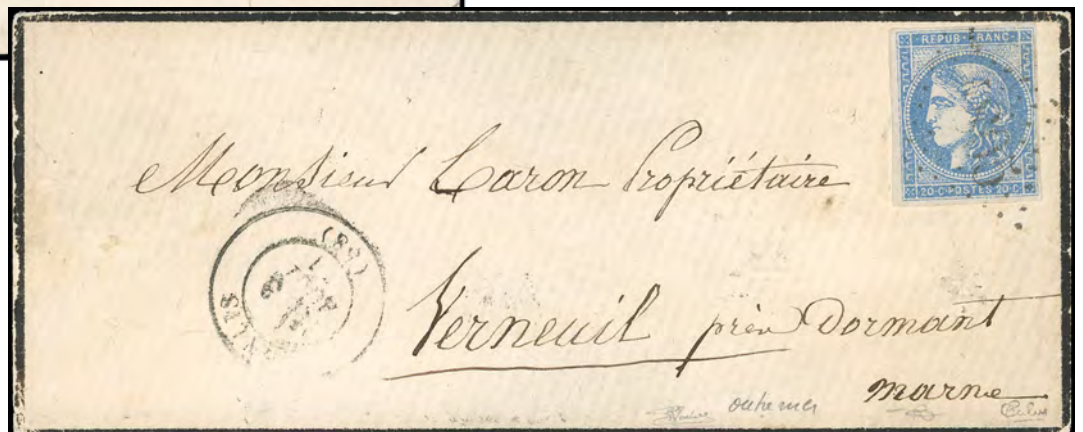 REPUB·FRANC·
20·C·POSTES·20·C
Monsieur Caron Propriétaire
Verneuil près Dormant
marne
(89)
outremer
Calves